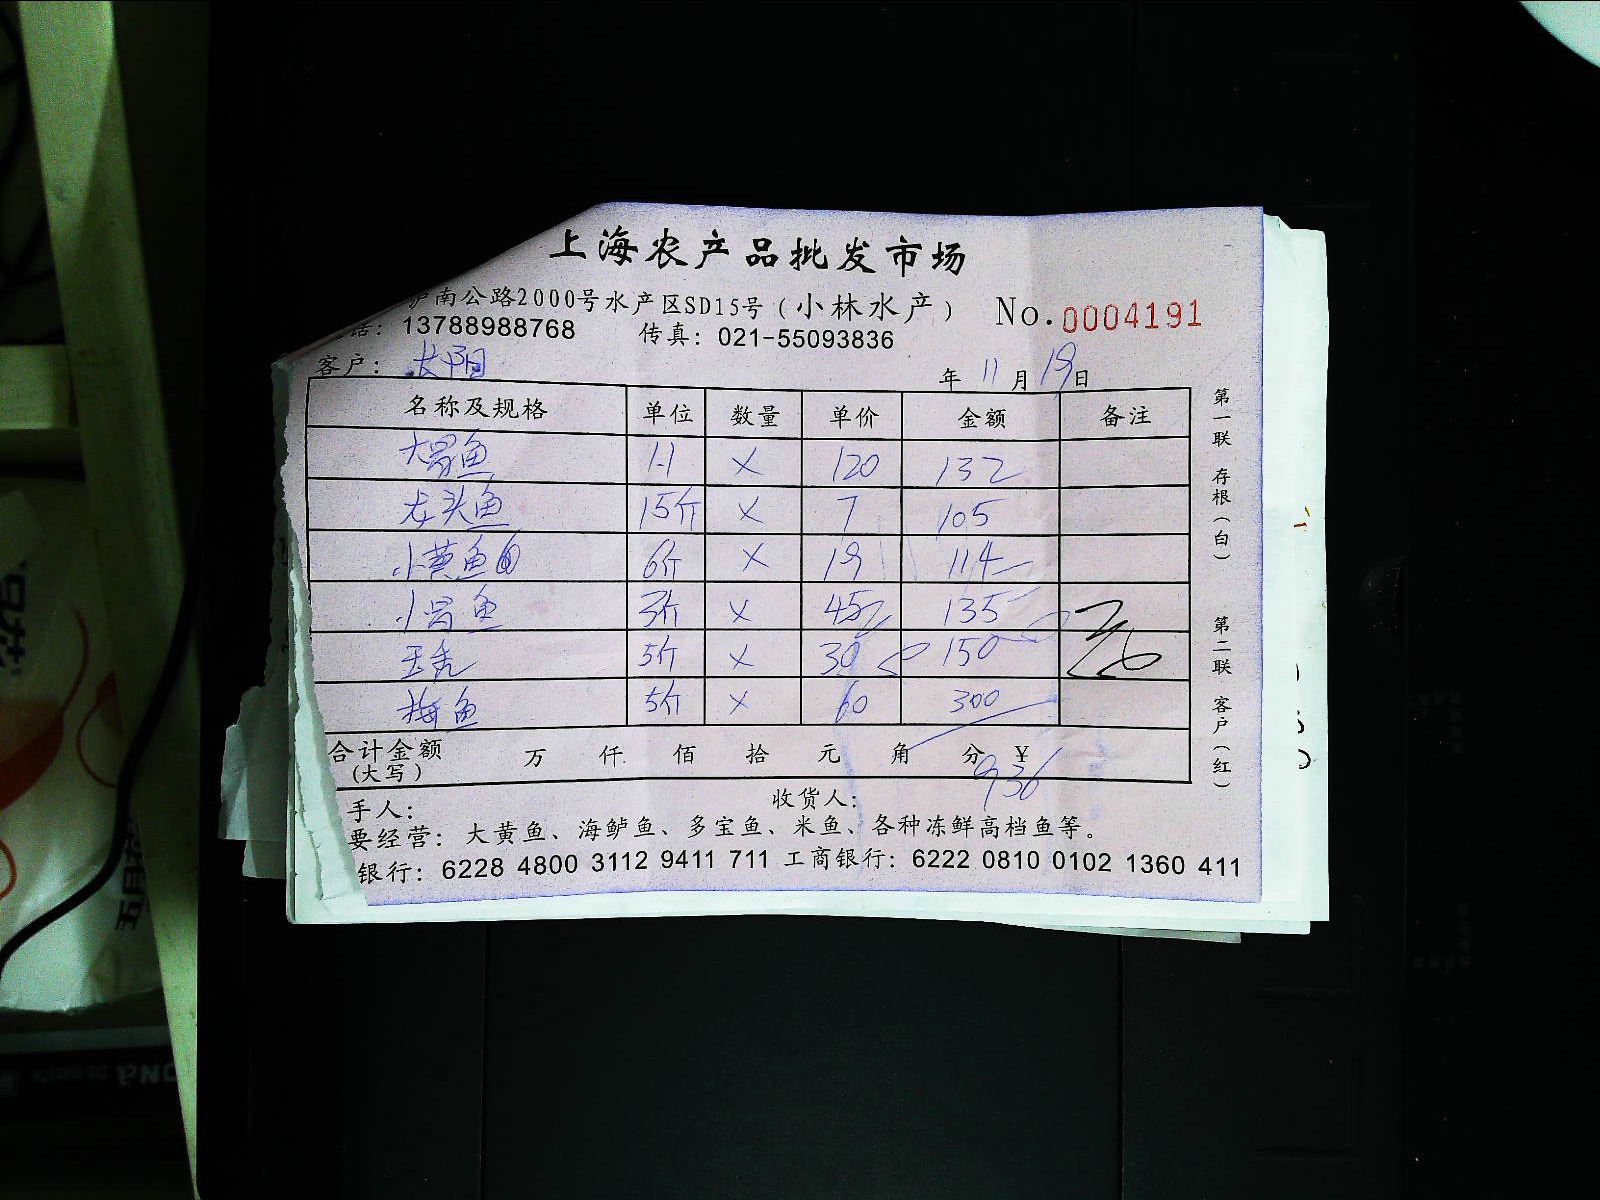 上海农产品批发市场
沪南公路2000号水产区SD15号（小林水产） No.0004191
话：13788988768 传真：021-55093836
客户：太阳 年 11 月 19 日
名称及规格 单位 数量 单价 金额 备注
大昌鱼 1.1 × 120 132
龙头鱼 15斤 × 7 105
小黄鱼 6斤 × 19 114
小昌鱼 3斤 × 45 135
5斤 × 30 150
梅鱼 5斤 × 60 300
合计金额 万 仟 佰 拾 元 角 分 ￥936
（大写）
手人： 收货人：
要经营：大黄鱼、海鲈鱼、多宝鱼、米鱼、各种冻鲜高档鱼等。
银行：6228 4800 3112 9411 711 工商银行：6222 0810 0102 1360 411
第一联 存根（白） 第二联 客户（红）